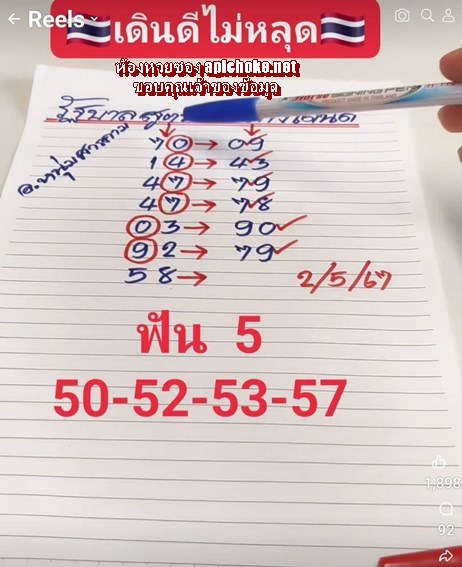 Reels
🇹🇭เดินดีไม่หลุด🇹🇭
ห้องหวยซอง apichoke.net
ขอบคุณเจ้าของข้อมูล
รัฐบาล
SIGNING PEN
อ.หนุ่มศาลาม
70→09
14→43
47→79
47→78
03→90
92→79
58→
2/5/67
ฟัน 5
50-52-53-57
1,898
92